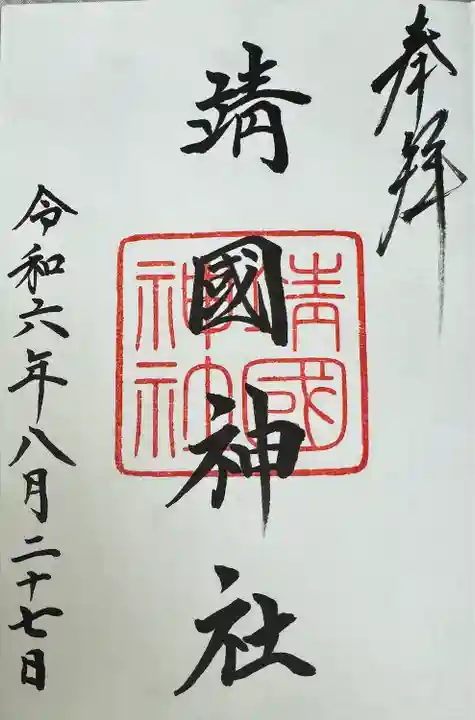 奉拝
靖國神社
靖國神社
令和六年八月二十七日